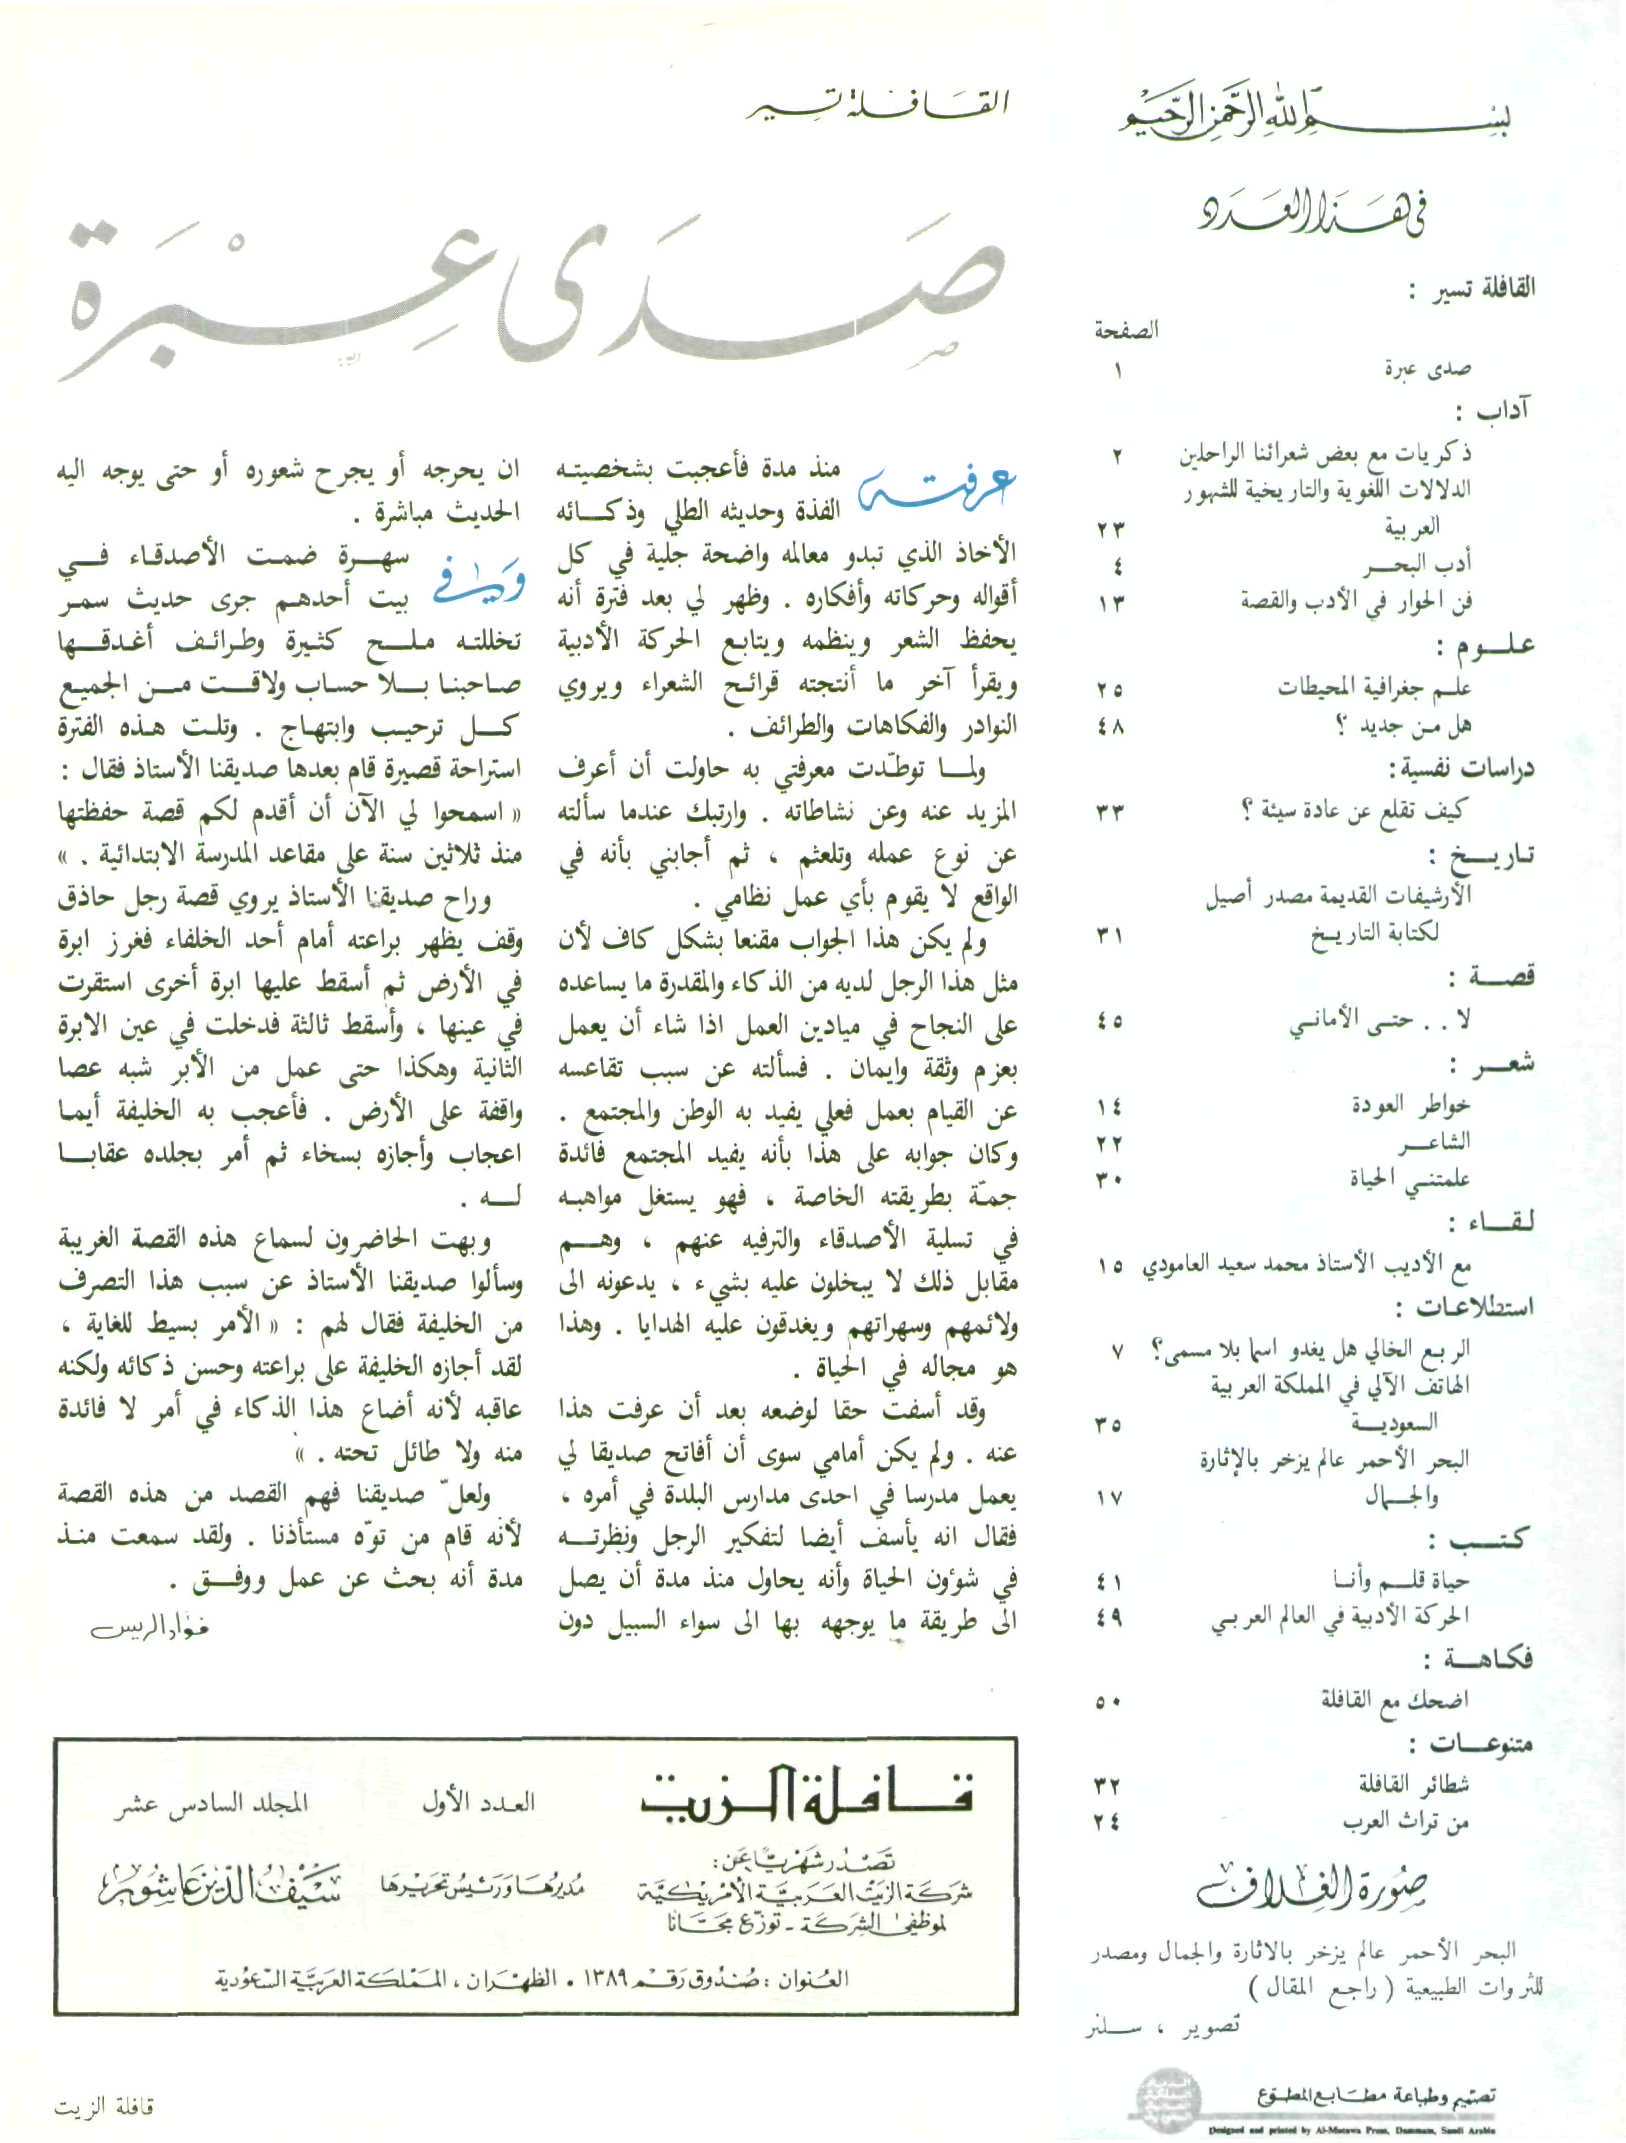 بسم الله الرحمن الرحيم
في هذا العدد
القافلة تسير :
الصفحة
صدى عبرة ١
آداب :
ذكريات مع بعض شعرائنا الراحلين ٢
الدلالات اللغوية والتاريخية للشهور
العربية ٢٣
أدب البحـــر ٤
فن الحوار في الأدب والقصة ١٣
علــوم :
علـم جغرافية المحيطات ٢٥
هل مـن جديد ؟ ٤٨
دراسات نفسية:
كيف تقلع عن عادة سيئة ؟ ٣٣
تاريــخ :
الأرشيفات القديمة مصدر أصيل
لكتابة التاريـخ ٣١
قصــة :
لا . . حتـى الأمانـي ٤٥
شعــر :
خواطر العودة ١٤
الشاعــر ٢٢
علمتنـي الحياة ٣٠
لـقـــاء :
مع الأديب الأستاذ محمد سعيد العامودي ١٥
استطلاعـات :
الربـع الخالي هل يغدو اسما بلا مسمى؟ ٧
الهاتف الآلي في المملكة العربية
السعوديـــة ٣٥
البحر الأحمر عالم يزخر بالإثارة
والجـــمال ١٧
كـتــب :
حياة قلــم وأنـا ٤١
الحركة الأدبية في العالم العربـي ٤٩
فـكـاهـــة :
اضحك مع القافلة ٥٠
متنوعــات :
شطائر القافلة ٣٢
من تراث العرب ٢٤
صورة الغلاف
البحر الأحمر عالم يزخر بالاثارة والجمال ومصدر
للثروات الطبيعية ( راجـع المقال )
تصوير ، سـلنر
تصميم وطباعة مطابع المطوع
Designed and printed by Al-Mutawa Press, Dammam, Saudi Arabia
القافلة تسير
صدى عبرة
عرفته منذ مدة فأعجبت بشخصيتـه
الفذة وحديثه الطلي وذكــائه
الأخاذ الذي تبدو معالمه واضحة جلية في كل
أقواله وحركاته وأفكاره . وظهر لي بعد فترة أنه
يحفظ الشعر وينظمه ويتابع الحركة الأدبية
ويقرأ آخر ما أنتجته قرائح الشعراء ويروي
النوادر والفكاهات والطرائف .
ولمـا توطّدت معرفتي به حاولت أن أعرف
المزيد عنه وعن نشاطاته . وارتبك عندما سألته
عن نوع عمله وتلعثم ، ثم أجابني بأنه في
الواقع لا يقوم بأي عمل نظامي .
ولم يكن هذا الجواب مقنعا بشكل كاف لأن
مثل هذا الرجل لديه من الذكاء والمقدرة ما يساعده
على النجاح في ميادين العمل اذا شاء أن يعمل
بعزم وثقة وايمان . فسألته عن سبب تقاعسه
عن القيام بعمل فعلي يفيد به الوطن والمجتمع .
وكان جوابه على هذا بأنه يفيد المجتمع فائدة
جمّة بطريقته الخاصة ، فهو يستغل مواهبـه
في تسلية الأصدقاء والترفيه عنهم ، وهــم
مقابل ذلك لا يبخلون عليه بشيء ، يدعونه الى
ولائمهم وسهراتهم ويغدقون عليه الهدايا . وهذا
هو مجاله في الحياة .
وقد أسفت حقا لوضعه بعد أن عرفت هذا
عنه . ولم يكن أمامي سوى أن أفاتح صديقا لي
يعمل مدرسا في احدى مدارس البلدة في أمره ،
فقال انه يأسف أيضا لتفكير الرجل ونظرتــه
في شؤون الحياة وأنه يحاول منذ مدة أن يصل
الى طريقة ما يوجهه بها الى سواء السبيل دون
ان يحرجه أو يجرح شعوره أو حتى يوجه اليه
الحديث مباشرة .
وفي سهـرة ضمـت الأصدقـاء فــي
بيت أحدهـم جرى حديث سمـر
تخللتـه ملــح كثيـرة وطرائـف أغـدقــها
صاحبنـا بــلا حساب ولاقــت مــن الجميـع
كــل ترحيـب وابتهـاج . وتلـت هـذه الفترة
استراحة قصيرة قام بعدها صديقنا الأستاذ فقال :
« اسمحوا لي الآن أن أقدم لكم قصة حفظتها
منذ ثلاثين سنة على مقاعد المدرسة الابتدائية . »
وراح صديقنا الأستاذ يروي قصة رجل حاذق
وقف يظهر براعته أمام أحد الخلفاء فغرز ابرة
في الأرض ثم أسقط عليها ابرة أخرى استقرت
في عينها ، وأسقط ثالثة فدخلت في عين الابرة
الثانية وهكذا حتى عمل من الأبر شبه عصا
واقفة على الأرض . فأعجب به الخليفة أيمـا
اعجاب وأجازه بسخاء ثم أمر بجلده عقابــا
لــه .
وبهت الحاضرون لسماع هذه القصة الغريبة
وسألوا صديقنا الأستاذ عن سبب هذا التصرف
من الخليفة فقال لهم : « الأمر بسيط للغاية ،
لقد أجازه الخليفة على براعته وحسن ذكائه ولكنه
عاقبه لأنه أضاع هذا الذكاء في أمر لا فائدة
منه ولا طائل تحته . »
ولعلّ صديقنا فهم القصد من هذه القصة
لأنه قام من توّه مستأذنا . ولقد سمعت منـذ
مدة أنه بحث عن عمل ووفـق .
فؤاد الريس
قافلة الزيت
العدد الأول
المجلد السادس عشر
تصدر شهريًا عن:
شركة الزيت العربية الأمريكية
لموظفي الشركة - توزع مجانًا
مديرها ورئيس تحريرها
سيف الدين عاشور
العنوان : صندوق رقم ١٣٨٩ . الظهران ، المملكة العربية السعودية
قافلة الزيت